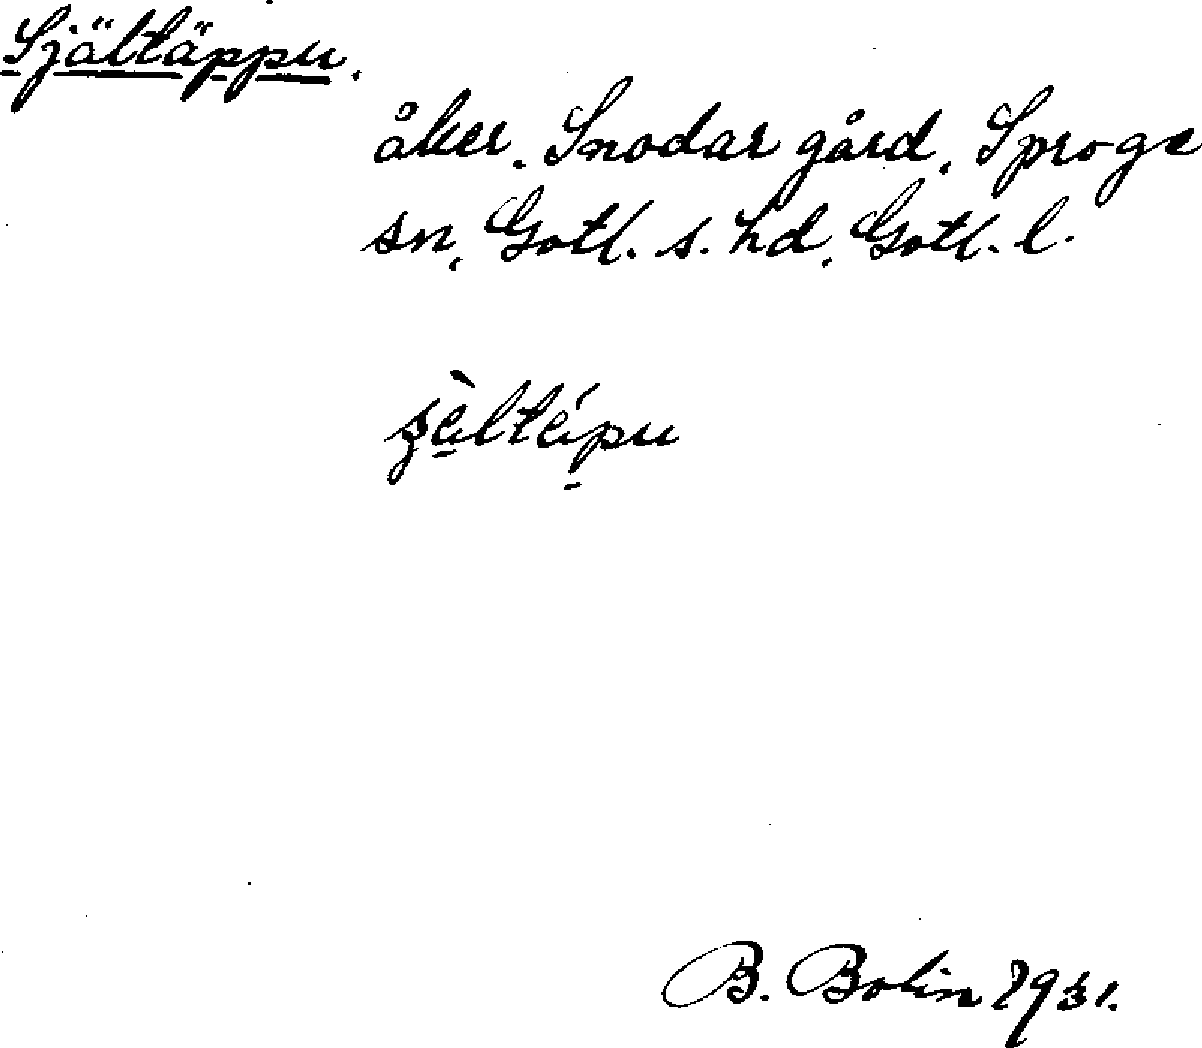 Själtäppu.
åker. Snodar gård, Sproge
sn, Gotl. s. hd, Gotl. l.
B. Bolin 1931.